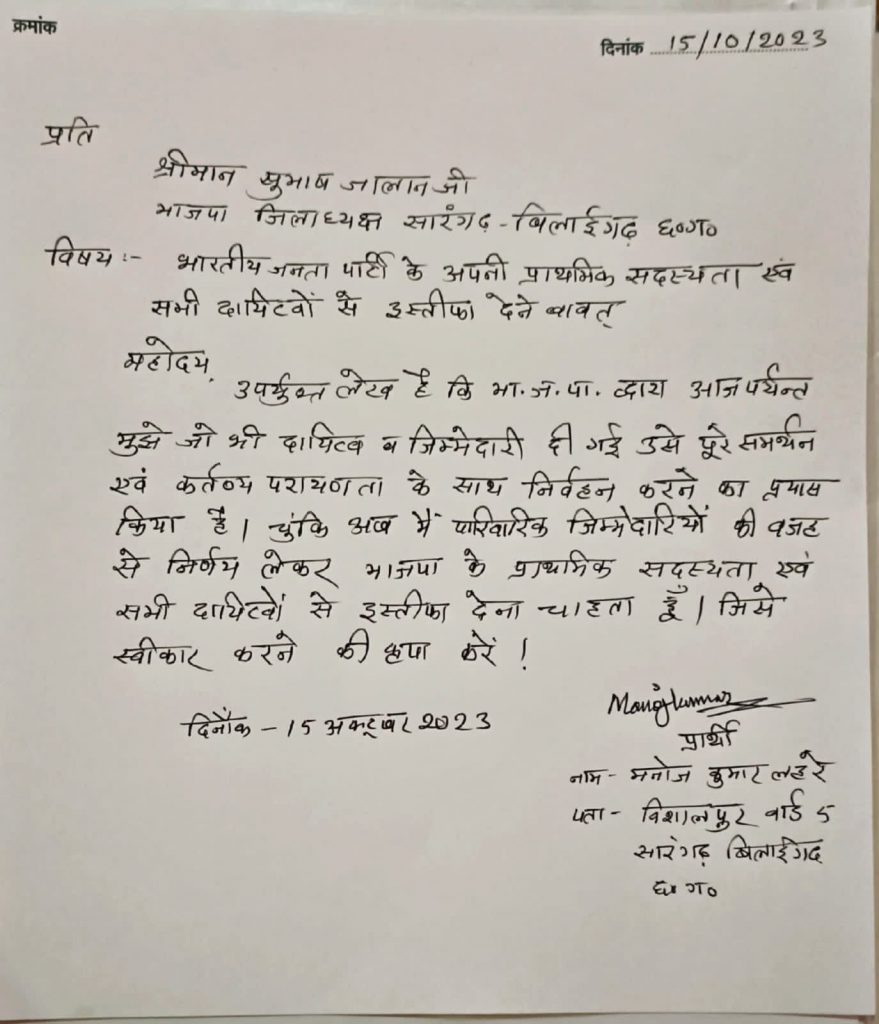 क्रमांक
दिनांक 15/10/2023
प्रति
श्रीमान सुभाष जालान जी
भाजपा जिलाध्यक्ष सारंगढ़ - बिलाईगढ़ छ०ग०
विषय :- भारतीय जनता पार्टी के अपनी प्राथमिक सदस्यता एवं
सभी दायित्वों से इस्तीफा देने बावत्
महोदय,
उपर्युक्त लेख है कि भा.ज.पा. द्वारा आजपर्यन्त
मुझे जो भी दायित्व व जिम्मेदारी दी गई उसे पूरे समर्थन
एवं कर्तव्य परायणता के साथ निर्वहन करने का प्रयास
किया है। चुंकि अब मैं पारिवारिक जिम्मेदारियों की वजह
से निर्णय लेकर भाजपा के प्राथमिक सदस्यता एवं
सभी दायित्वों से इस्तीफा देना चाहता हूँ। जिसे
स्वीकार करने की कृपा करें !
दिनाँक - 15 अक्टूबर 2023
Manojkumar
प्रार्थी
नाम - मनोज कुमार लहरे
पता - विशालपुर वार्ड 5
सारंगढ़ बिलाईगढ़
छ० ग०